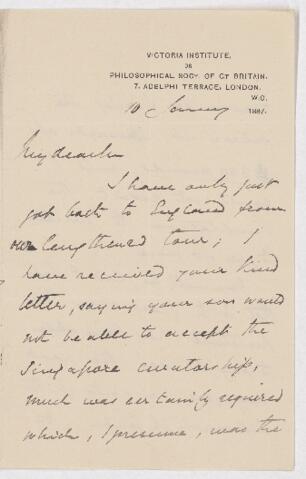 VICTORIA INSTITUTE,
OR
PHILOSOPHICAL SOCY. OF GT BRITAIN.
7, ADELPHI TERRACE, LONDON.
W.C.
10 January 1887.
My dear Sir
I have only just
got back to England from
our lengthened tour; I
have received your kind
letter, saying your son would
not be able to accept the
Singapore curatorship,
much was certainly required
which, I presume, was the